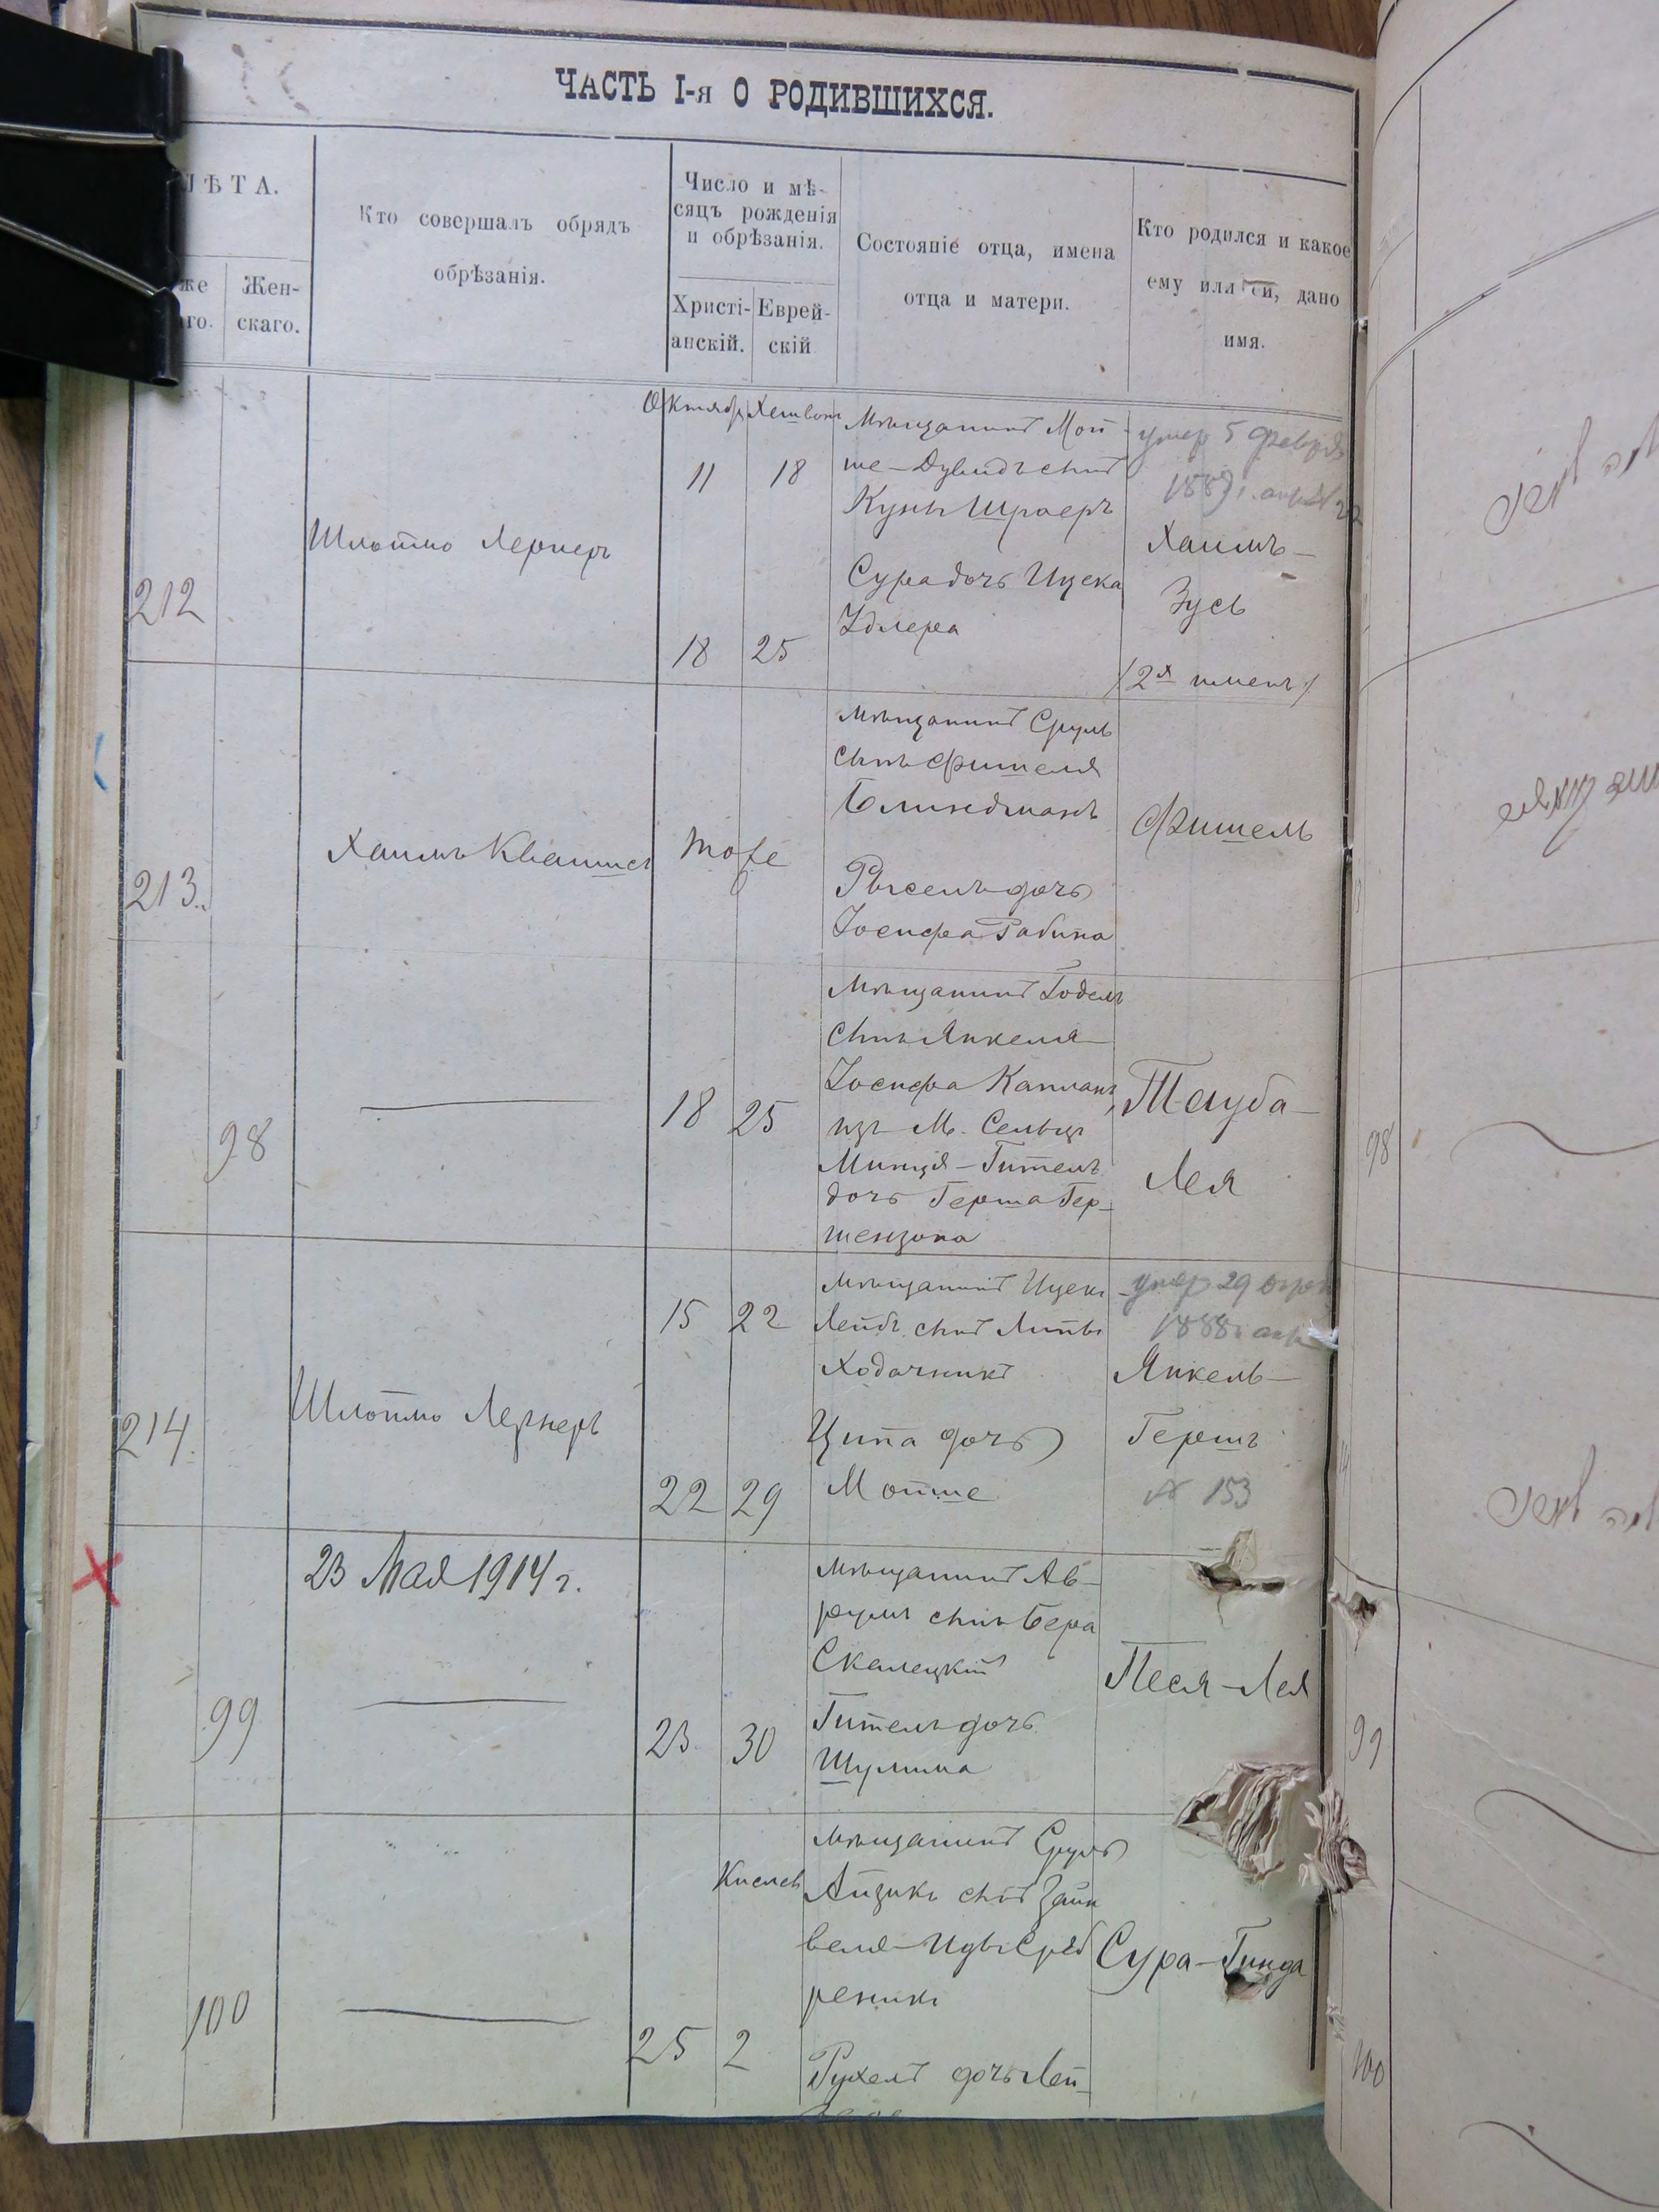 ЧАСТЬ I-я О РОДИВШИХСЯ.
ЛѢТА.
же
го.
Жен-
скаго.
Кто совершалъ обрядъ
обрѣзанія.
Число и мѣ-
сяцъ рожденія
и обрѣзанія.
Христі-
анскій.
Еврей-
скій
Состояніе отца, имена
отца и матери.
Кто родился и какое
ему или ей, дано
имя.
212
Шлоймо Лернеръ
Октябр
11
18
18
25
Мѣщанинъ Мой-
ше-Дувидъ сынъ
Куны Шраеръ
Сура дочь Ицека
Удлера
умер 5 Февраля
Хаимъ-
Зусь
/2й именъ/
213.
Хаимъ
тоже
Мѣщанинъ Сруль
сынъ Фишеля
Блиндманъ
Рысель дочь
Іосифа Рабина
Фишель
98
18
25
Мѣщанинъ Годель
сынъ Янкеля
Іосифа Капланъ
изъ М. Сельцъ
Минця-Гитель
дочь Герша Гер-
шензона
Тауба-
Лея
98
214.
Шлоймо Лернеръ
15
22
22
29
Мѣщанинъ Ицекъ
Лейбъ сынъ Липы
Ходачникъ
Ципа дочь
Мойше
умер 29
1888
Янкель-
Гершъ
№ 153
23 Мая 1914 г.
99
23
30
Мѣщанинъ Ав-
румъ сынъ Бера
Скалецкій
Гитель дочь
Шулима
Песя-Лея
99
100
Кислев
25
2
Мѣщанинъ Сруль
Айзикъ сынъ Зайн
веля-Иды Среб
реникъ
Рухель дочь Лей-
Сура-Гинда
100